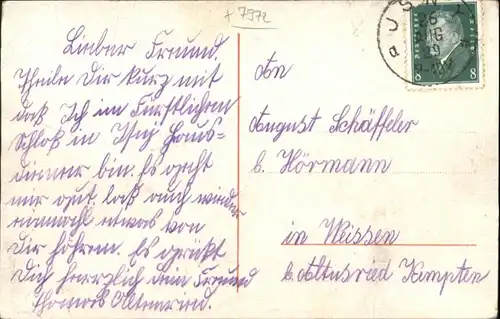 + 7972
Lieber Freund.
Theile Dir kurz mit
daß Ich im Fürstlichen
Schloß in Isny Haus-
diener bin. Es geht
mir gut. laß auch wieder
einmahl etwas von
Dir hören. Es grüßt
Dich herzlich dein Freund
Thomas Altenried.
An
August Schäffeler
b. Hörmann
in Weissen
b. Altusried Kempten
8 8